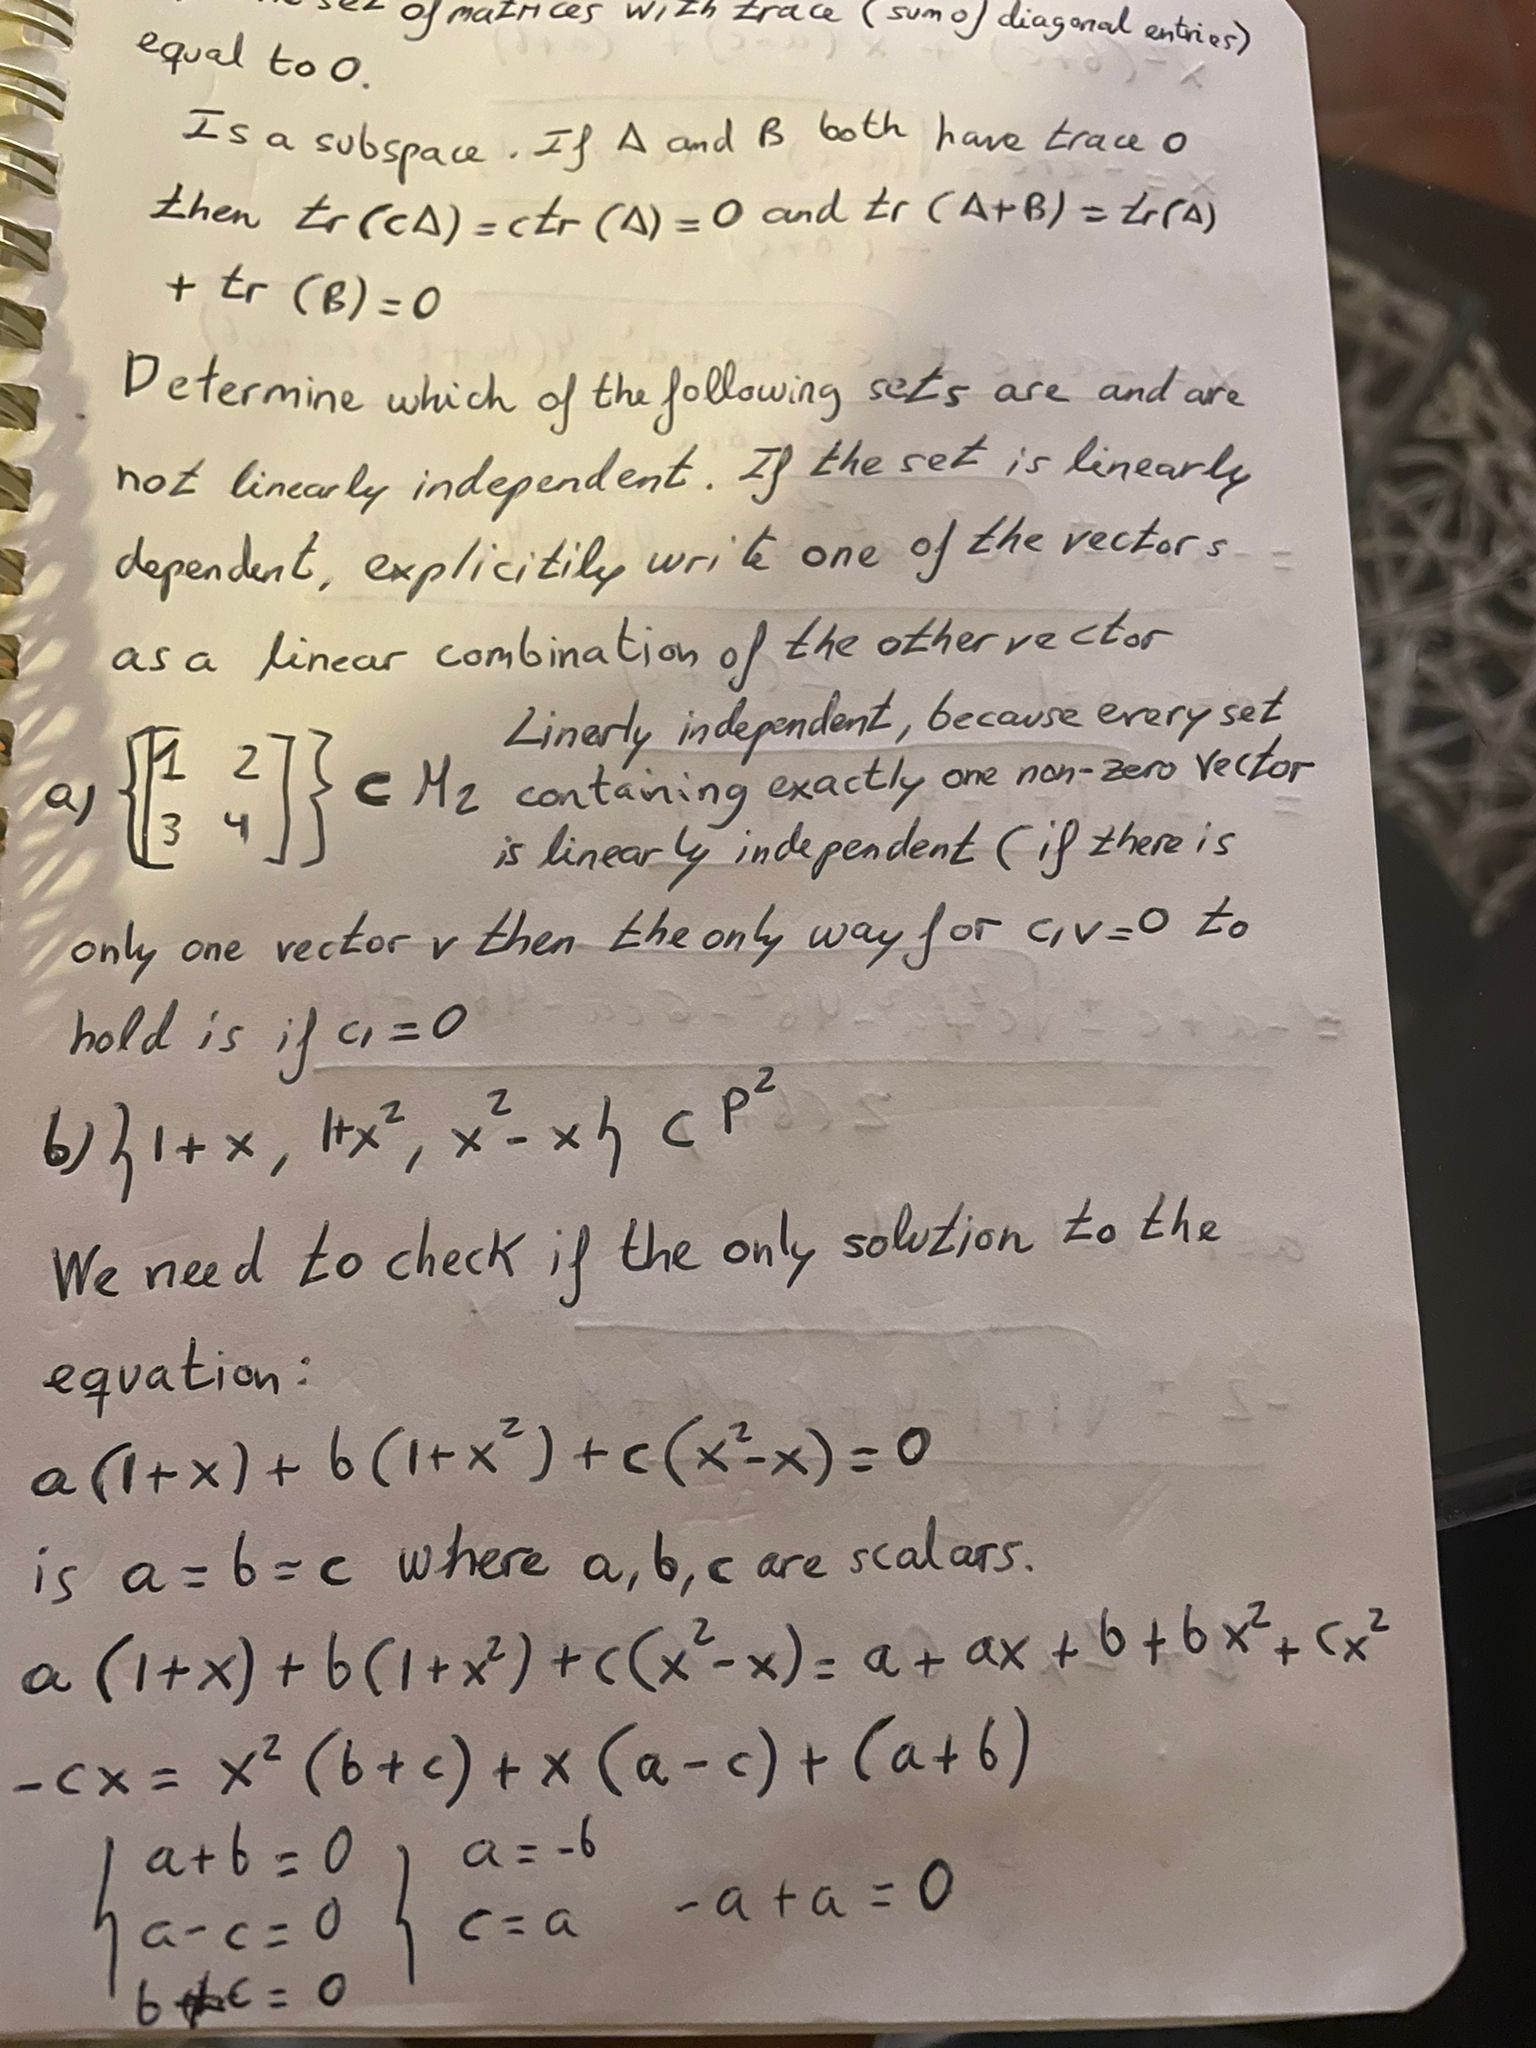 set of matrices with trace (sum of diagonal entries)
equal to 0.
Is a subspace. If A and B both have trace 0
then tr(cA) = ctr(A) = 0 and tr(A+B) = tr(A)
+ tr(B) = 0
Determine which of the following sets are and are
not linearly independent. If the set is linearly
dependent, explicitily write one of the vectors
as a linear combination of the other vector
a) {[1 2
3 4]} ⊂ M2
Linerly independent, because every set
containing exactly one non-zero vector
is linearly independent (if there is
only one vector v then the only way for c₁v=0 to
hold is if c₁=0
b) {1+x, 1+x², x²-x} ⊂ P²
We need to check if the only solution to the
equation:
a(1+x) + b(1+x²) + c(x²-x) = 0
is a = b = c where a, b, c are scalars.
a(1+x) + b(1+x²) + c(x²-x) = a + ax + b + bx² + cx²
-cx = x²(b+c) + x(a-c) + (a+b)
{ a+b = 0 { a = -b
a-c = 0 c = a -a+a = 0
b+c = 0